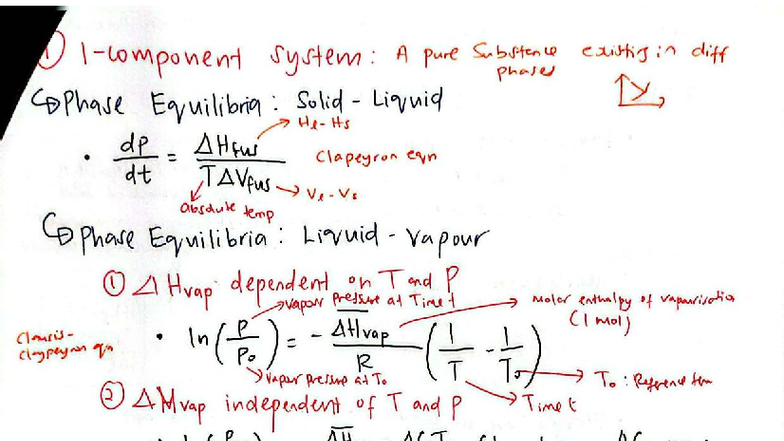 ① 1-component system: A pure Substance existing in diff phases
↪ Phase Equilibria: Solid-Liquid
• dP/dt = ΔHfus / TΔVfus
Hl-Hs
Clapeyron eqn
Vl-Vs
Absolute temp
↪ Phase Equilibria: Liquid-Vapour
① ΔHvap dependent on T and P
Vapour Pressure at Time t
Molar enthalpy of vapourisation
(1 mol)
Clausis-
Claypeyron eqn
• ln(P/Po) = - ΔHvap/R (1/T - 1/To)
Vapour Pressure at To
To: Reference tem
Time t
② ΔHvap independent of T and P